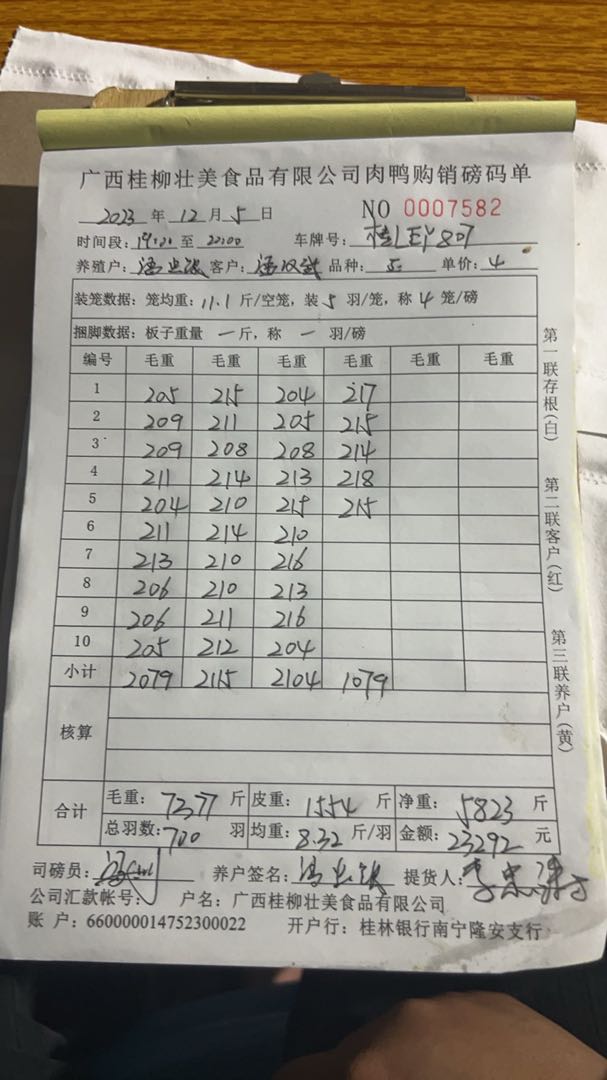 广西桂柳壮美食品有限公司肉鸭购销磅码单
2023 年 12 月 5 日 NO 0007582
时间段: 19:20 至 22:00 车牌号: 桂
养殖户: 客户: 品种: 单价: 4
装笼数据: 笼均重: 11.1 斤/空笼, 装 5 羽/笼, 称 4 笼/磅
捆脚数据: 板子重量 一 斤, 称 一 羽/磅
编号 毛重 毛重 毛重 毛重 毛重 毛重
1 205 215 204 217
2 209 211 205 215
3 209 208 208 214
4 211 214 213 218
5 204 210 215 215
6 211 214 210
7 213 210 216
8 206 210 213
9 206 211 216
10 205 212 204
小计 2079 2115 2104 1079
核算
合计 毛重: 7377 斤 皮重: 1554 斤 净重: 5823 斤
总羽数: 700 羽 均重: 8.32 斤/羽 金额: 23292 元
司磅员: 养户签名: 提货人:
公司汇款帐号: 户名: 广西桂柳壮美食品有限公司
账 户: 660000014752300022 开户行: 桂林银行南宁隆安支行
第一联存根(白)
第二联客户(红)
第三联养户(黄)